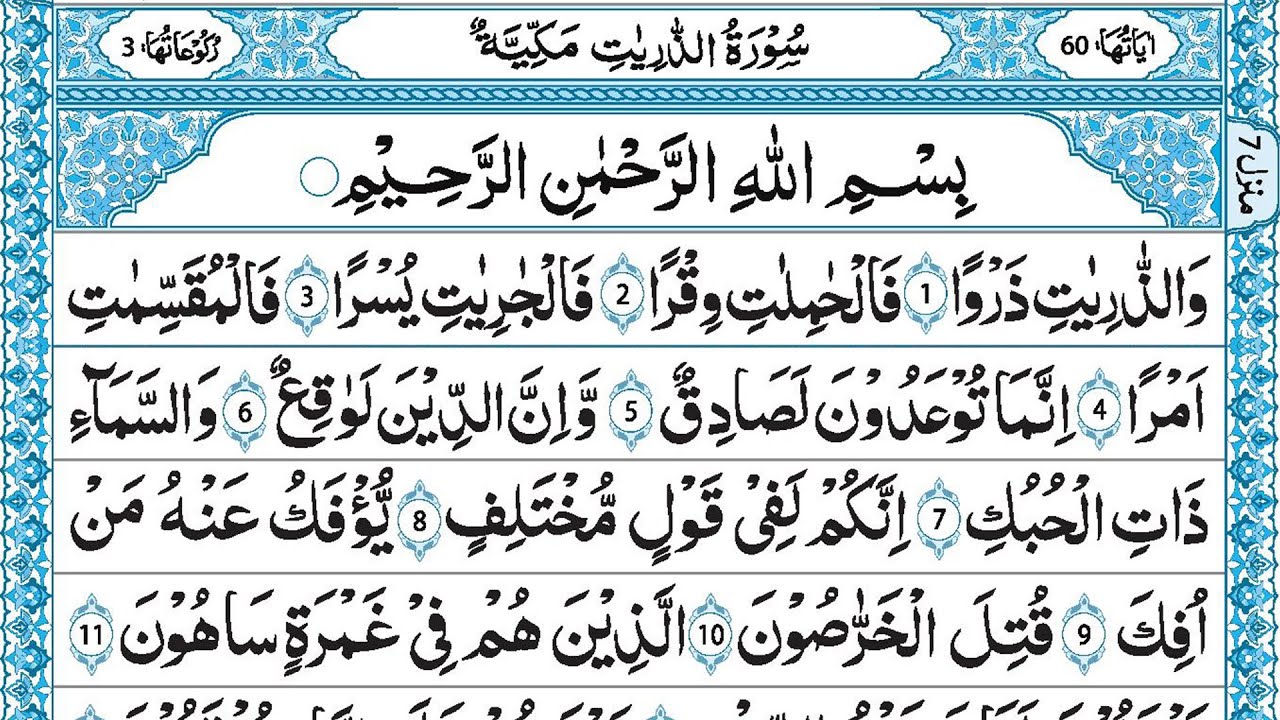 اٰيَاتُهَا: 60 سُوْرَةُ الذّٰرِيٰتِ مَكِّيَّةٌ رُكُوْعَاتُهَا: 3
منزل 7
بِسْمِ اللّٰهِ الرَّحْمٰنِ الرَّحِيْمِ
وَالذّٰرِيٰتِ ذَرْوًا 1 فَالْحٰمِلٰتِ وِقْرًا 2 فَالْجٰرِيٰتِ يُسْرًا 3 فَالْمُقَسِّمٰتِ
اَمْرًا 4 اِنَّمَا تُوْعَدُوْنَ لَصَادِقٌ 5 وَّاِنَّ الدِّيْنَ لَوَاقِعٌ 6 وَالسَّمَآءِ
ذَاتِ الْحُبُكِ 7 اِنَّكُمْ لَفِيْ قَوْلٍ مُّخْتَلِفٍ 8 يُّؤْفَكُ عَنْهُ مَنْ
اُفِكَ 9 قُتِلَ الْخَرّٰصُوْنَ 10 الَّذِيْنَ هُمْ فِيْ غَمْرَةٍ سَاهُوْنَ 11